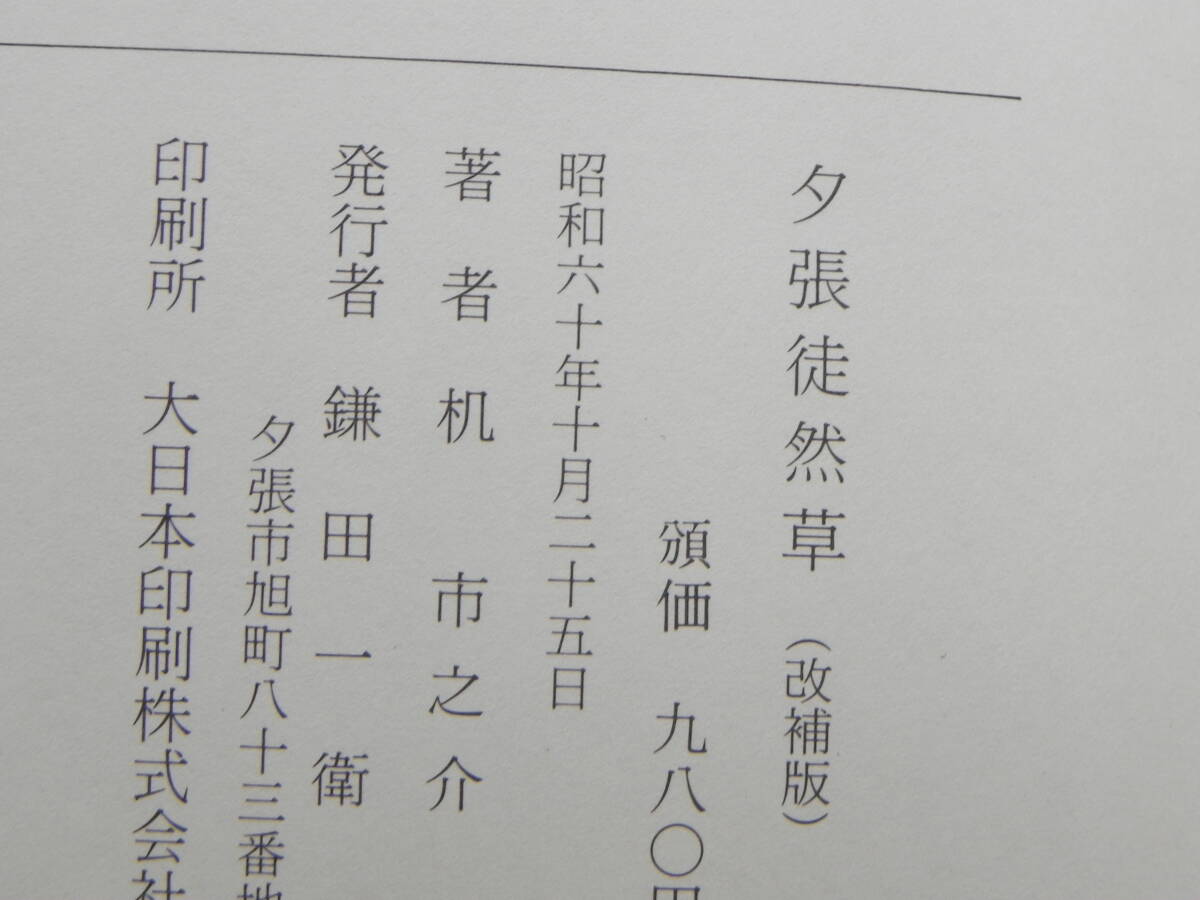 夕張徒然草（改補版）
頒価 九八〇円
昭和六十年十月二十五日
著者 机 市之介
発行者 鎌田一衛
夕張市旭町八十三番地
印刷所 大日本印刷株式会社